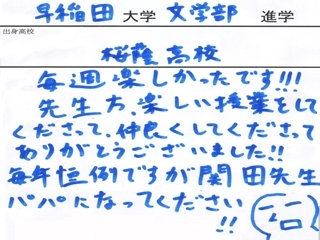 早稲田大学 文学部 進学
出身高校
桜蔭高校
毎週楽しかったです!!!
先生方、楽しい授業をして
くださって、仲良くしてくださって
ありがとうございました!!
毎年恒例ですが関田先生
パパになってください
!!